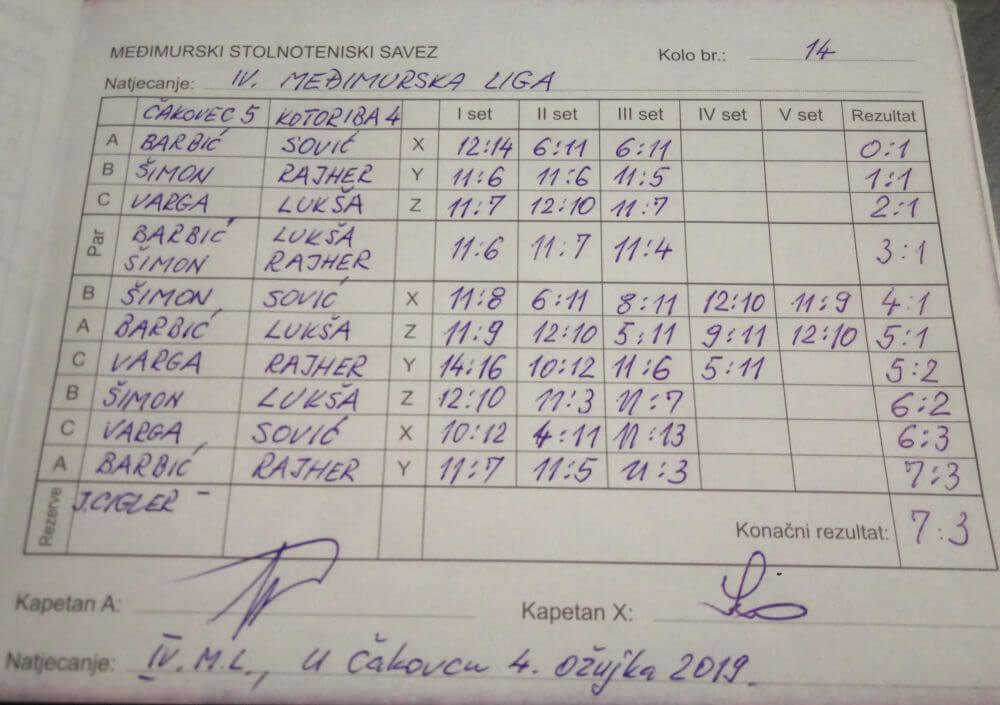 MEĐIMURSKI STOLNOTENISKI SAVEZ Kolo br.: 14
Natjecanje: IV. MEĐIMURSKA LIGA
ČAKOVEC 5 KOTORIBA 4 I set II set III set IV set V set Rezultat
A BARBIĆ SOVIĆ X 12:14 6:11 6:11 0:1
B ŠIMON RAJHER Y 11:6 11:6 11:5 1:1
C VARGA LUKŠA Z 11:7 12:10 11:7 2:1
Par BARBIĆ LUKŠA 11:6 11:7 11:4 3:1
ŠIMON RAJHER
B ŠIMON SOVIĆ X 11:8 6:11 8:11 12:10 11:9 4:1
A BARBIĆ LUKŠA Z 11:9 12:10 5:11 9:11 12:10 5:1
C VARGA RAJHER Y 14:16 10:12 11:6 5:11 5:2
B ŠIMON LUKŠA Z 12:10 11:3 11:7 6:2
C VARGA SOVIĆ X 10:12 4:11 11:13 6:3
A BARBIĆ RAJHER Y 11:7 11:5 11:3 7:3
Rezerve J.CIGLER -
Konačni rezultat: 7:3
Kapetan A: Kapetan X:
Natjecanje: IV. M.L., U Čakovcu 4. ožujka 2019.